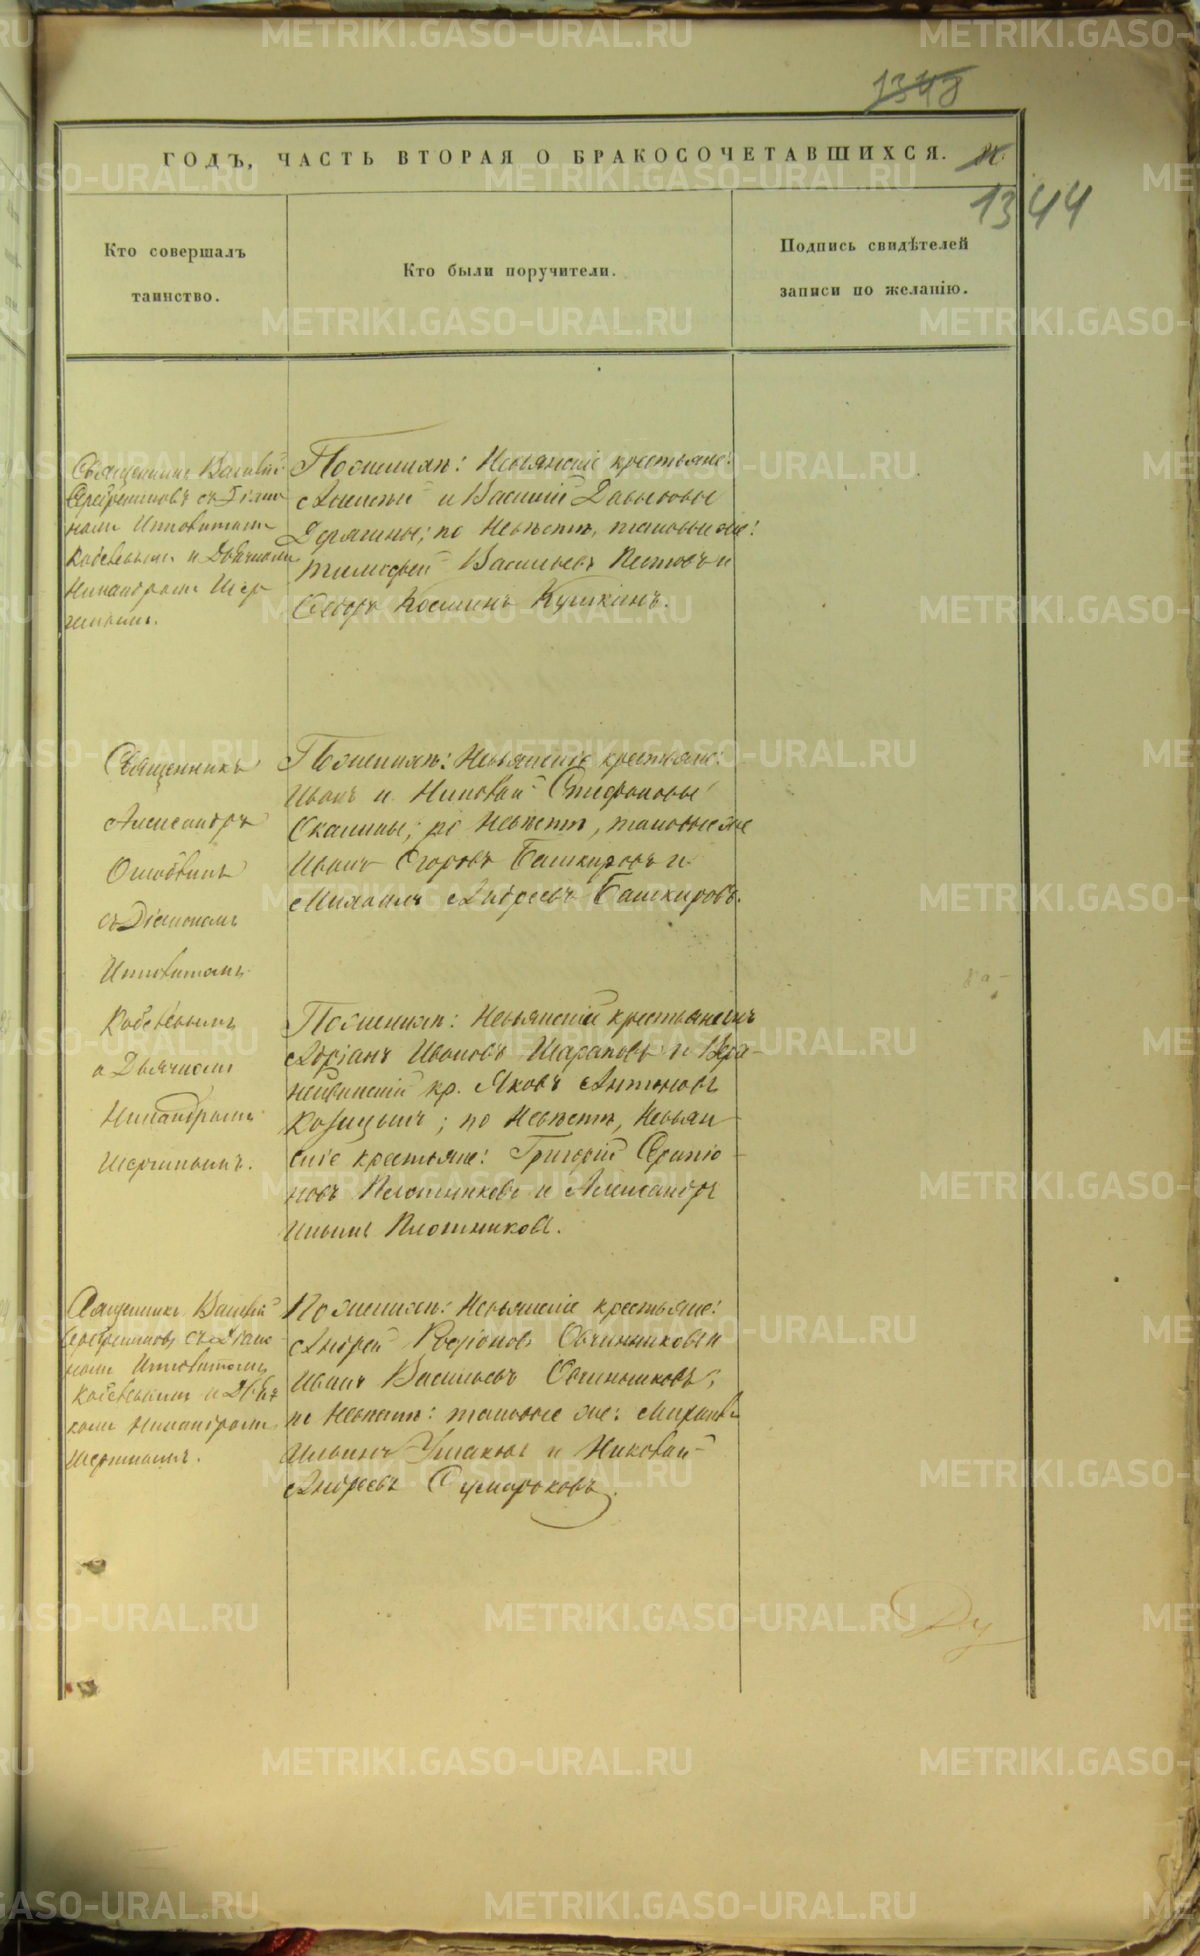 1348
ГОДЪ, ЧАСТЬ ВТОРАЯ О БРАКОСОЧЕТАВШИХСЯ.
1344
Кто совершалъ
таинство.
Кто были поручители.
Подпись свидѣтелей
записи по желанію.
Священникъ Василій
Серебренниковъ съ Діако
номъ Ипполитомъ
и Дьячкомъ
Никандромъ
По женихѣ: Невьянскіе крестьяне:
Алексѣй и Василій Давыдовы
Дерягины; по невѣстѣ, таковые же:
Тимофей Васильевъ Пестовъ и
Ѳедоръ Косминъ Кушкинъ.
Священникъ
Александръ
съ Діакономъ
Ипполитомъ
и Дьячкомъ
Никандромъ
По женихѣ: Невьянскіе крестьяне:
Иванъ и Николай Стефановы
Скалины; по невѣстѣ, таковые же
Иванъ Егоровъ Башкировъ и
Михаилъ Андреевъ Башкировъ.
По женихѣ: Невьянскій крестьянинъ
Адріанъ Ивановъ Шараповъ и Верх-
нейвинскій кр. Яковъ Антоновъ
Козицынъ; по невѣстѣ, Невьян-
скіе крестьяне: Григорій Серапіо-
новъ Плотниковъ и Александръ
Ильинъ Плотниковъ.
Священникъ Василій
Серебренниковъ съ Діако
номъ Ипполитомъ
и Дьяч
комъ Никандромъ
По женихѣ: Невьянскіе крестьяне:
Андрей Родіоновъ Овчинниковъ и
Иванъ Васильевъ Овчинниковъ;
по невѣстѣ: таковые же: Михаилъ
Ильинъ Ушаковъ и Николай
Андреевъ Сумароковъ.
METRIKI.GASO-URAL.RU